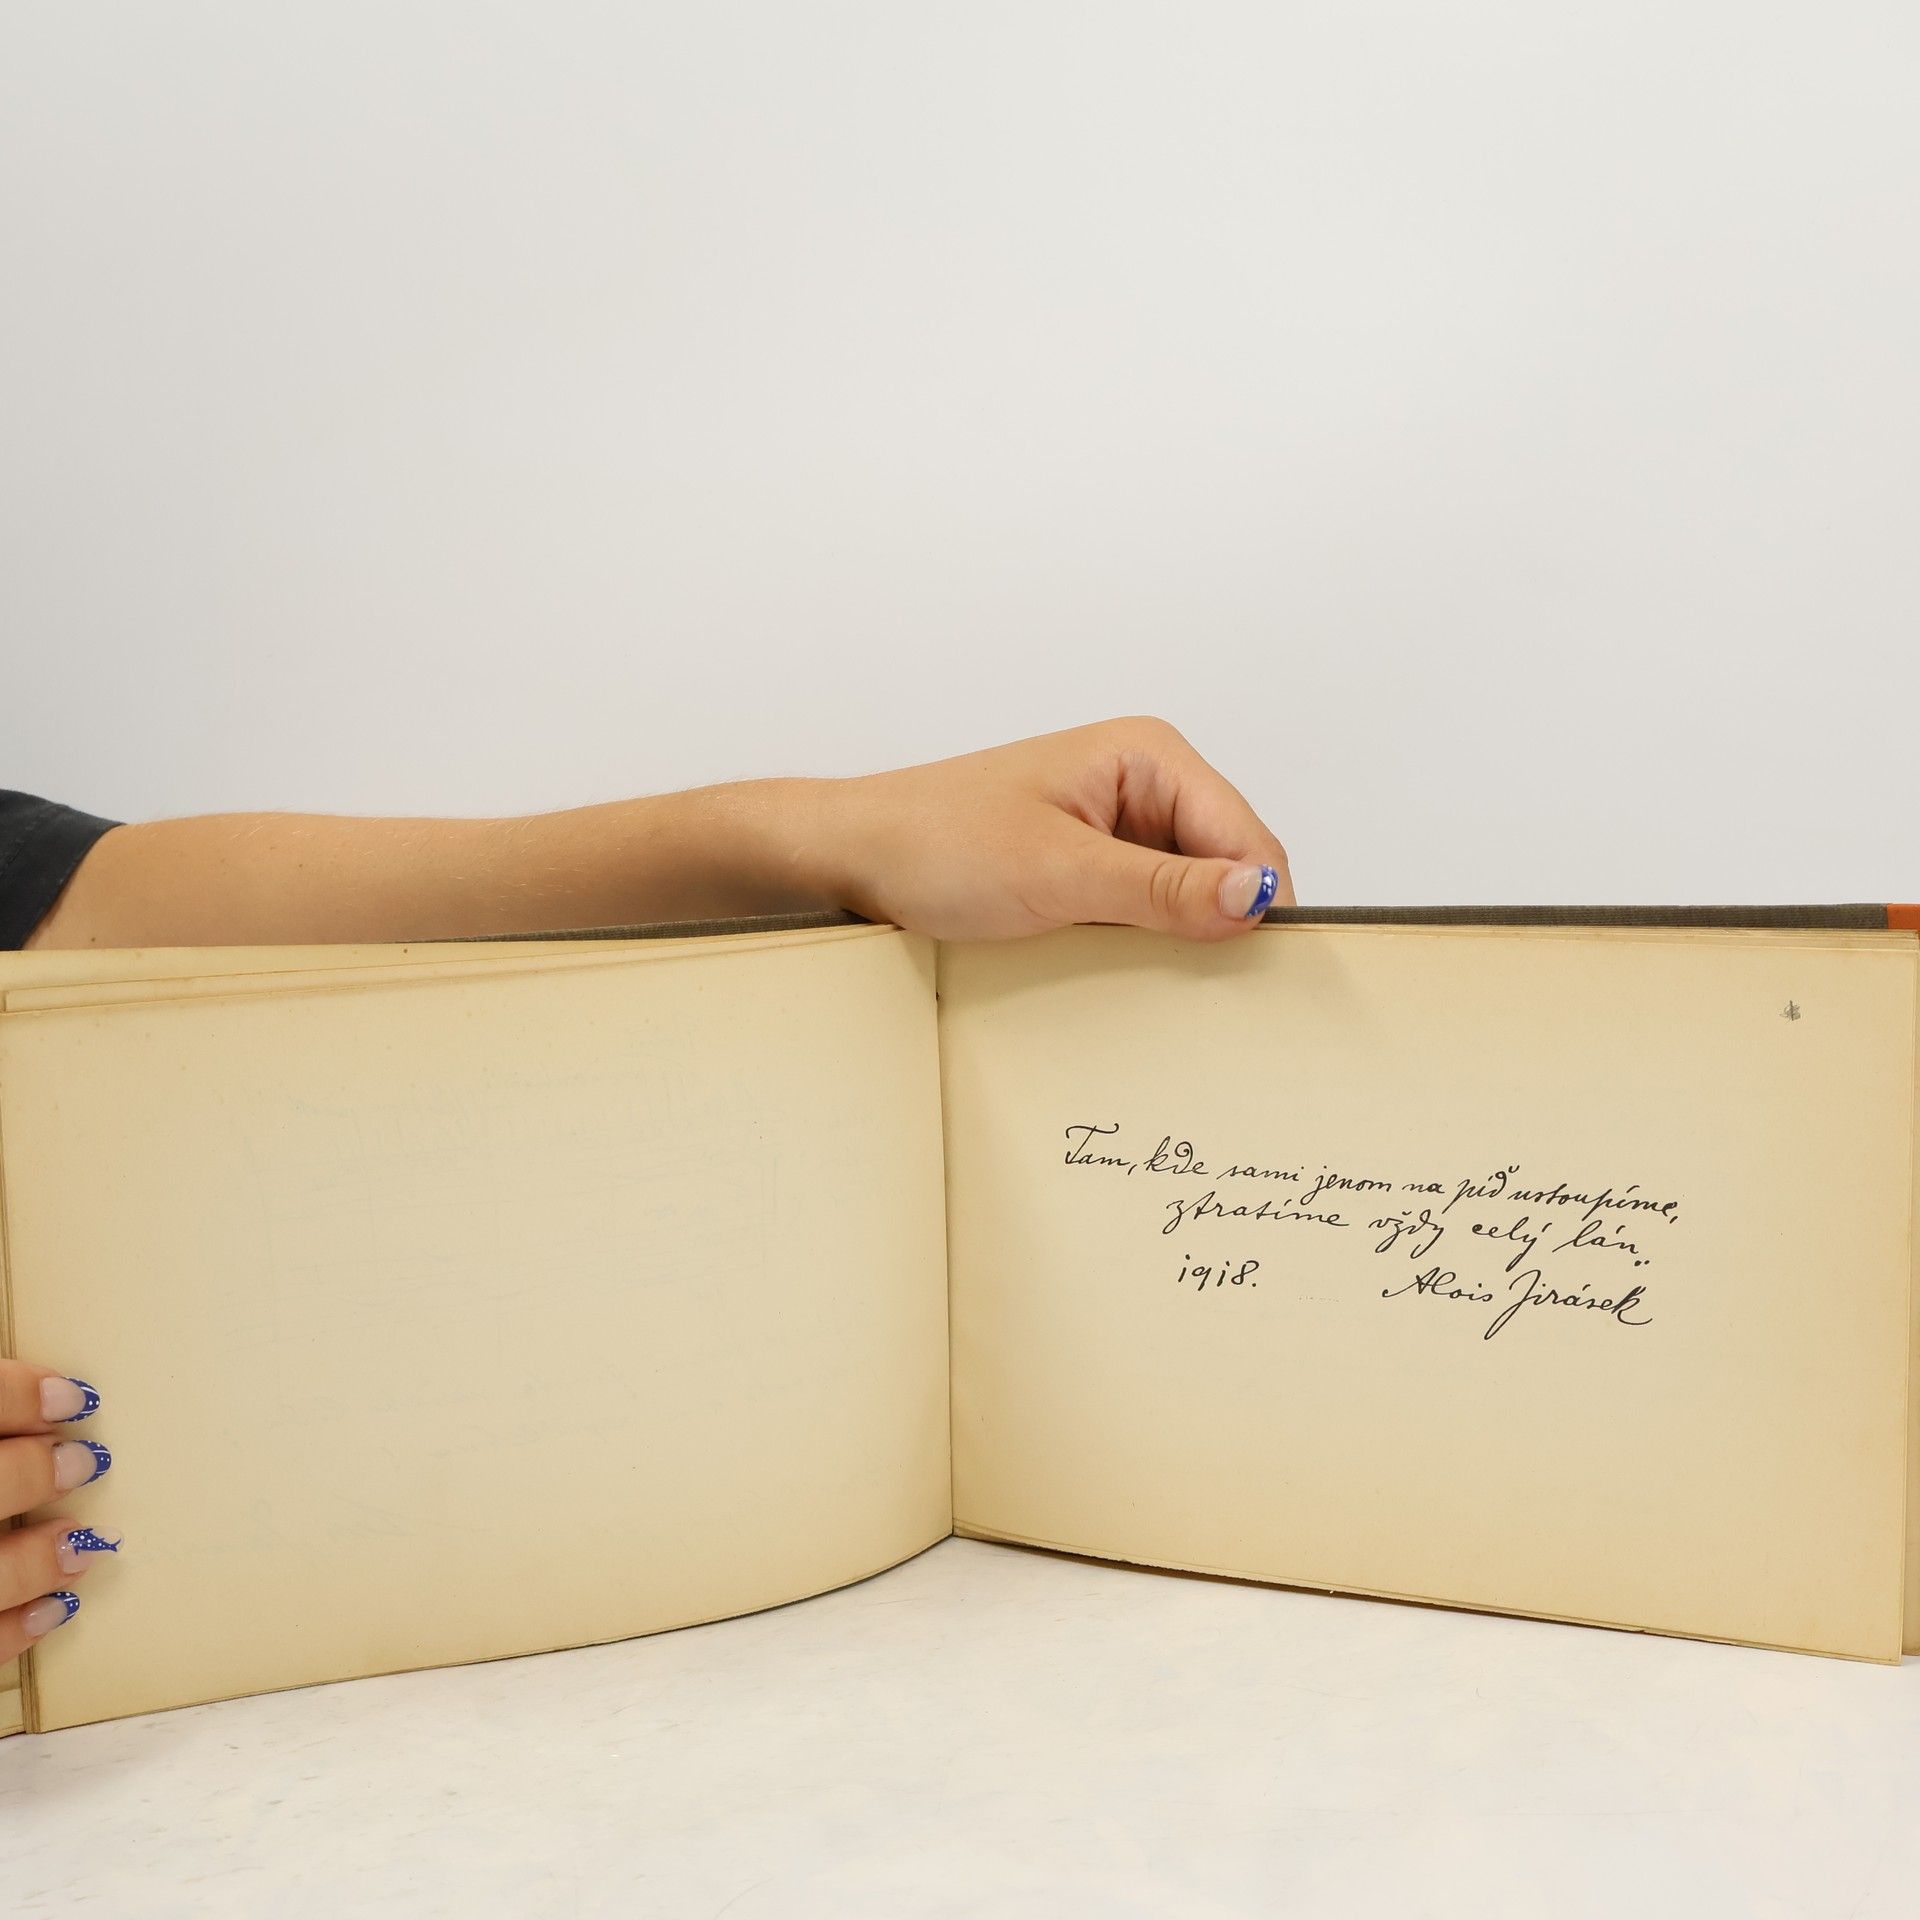 Tam, kde sami jenom na píď ustoupíme,
ztratíme vždy celý lán.
1918. Alois Jirásek